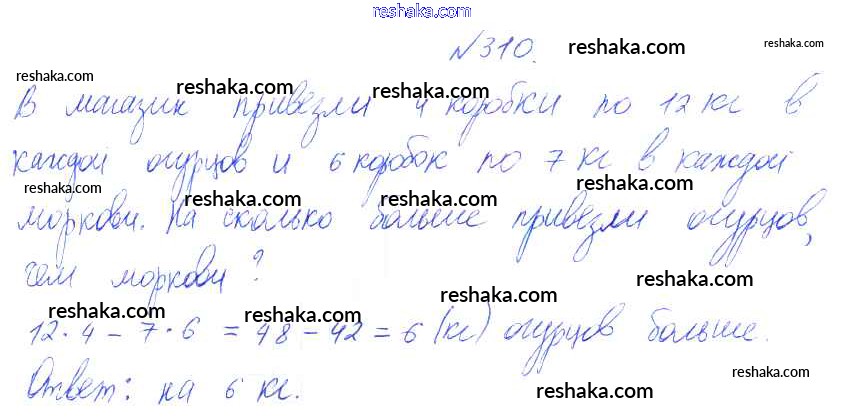 reshaka.com
№310. reshaka.com reshaka.com
reshaka.com reshaka.com reshaka.com reshaka.com
В магазин привезли 4 коробки по 12 кг в
reshaka.com reshaka.com reshaka.com
каждой огурцов и 6 коробок по 7 кг в каждой
reshaka.com reshaka.com reshaka.com reshaka.com
моркови. На сколько больше привезли огурцов,
чем моркови?
reshaka.com reshaka.com reshaka.com reshaka.com
12·4 – 7·6 = 48 – 42 = 6 (кг) огурцов больше.
reshaka.com reshaka.com
Ответ: на 6 кг.
reshaka.com